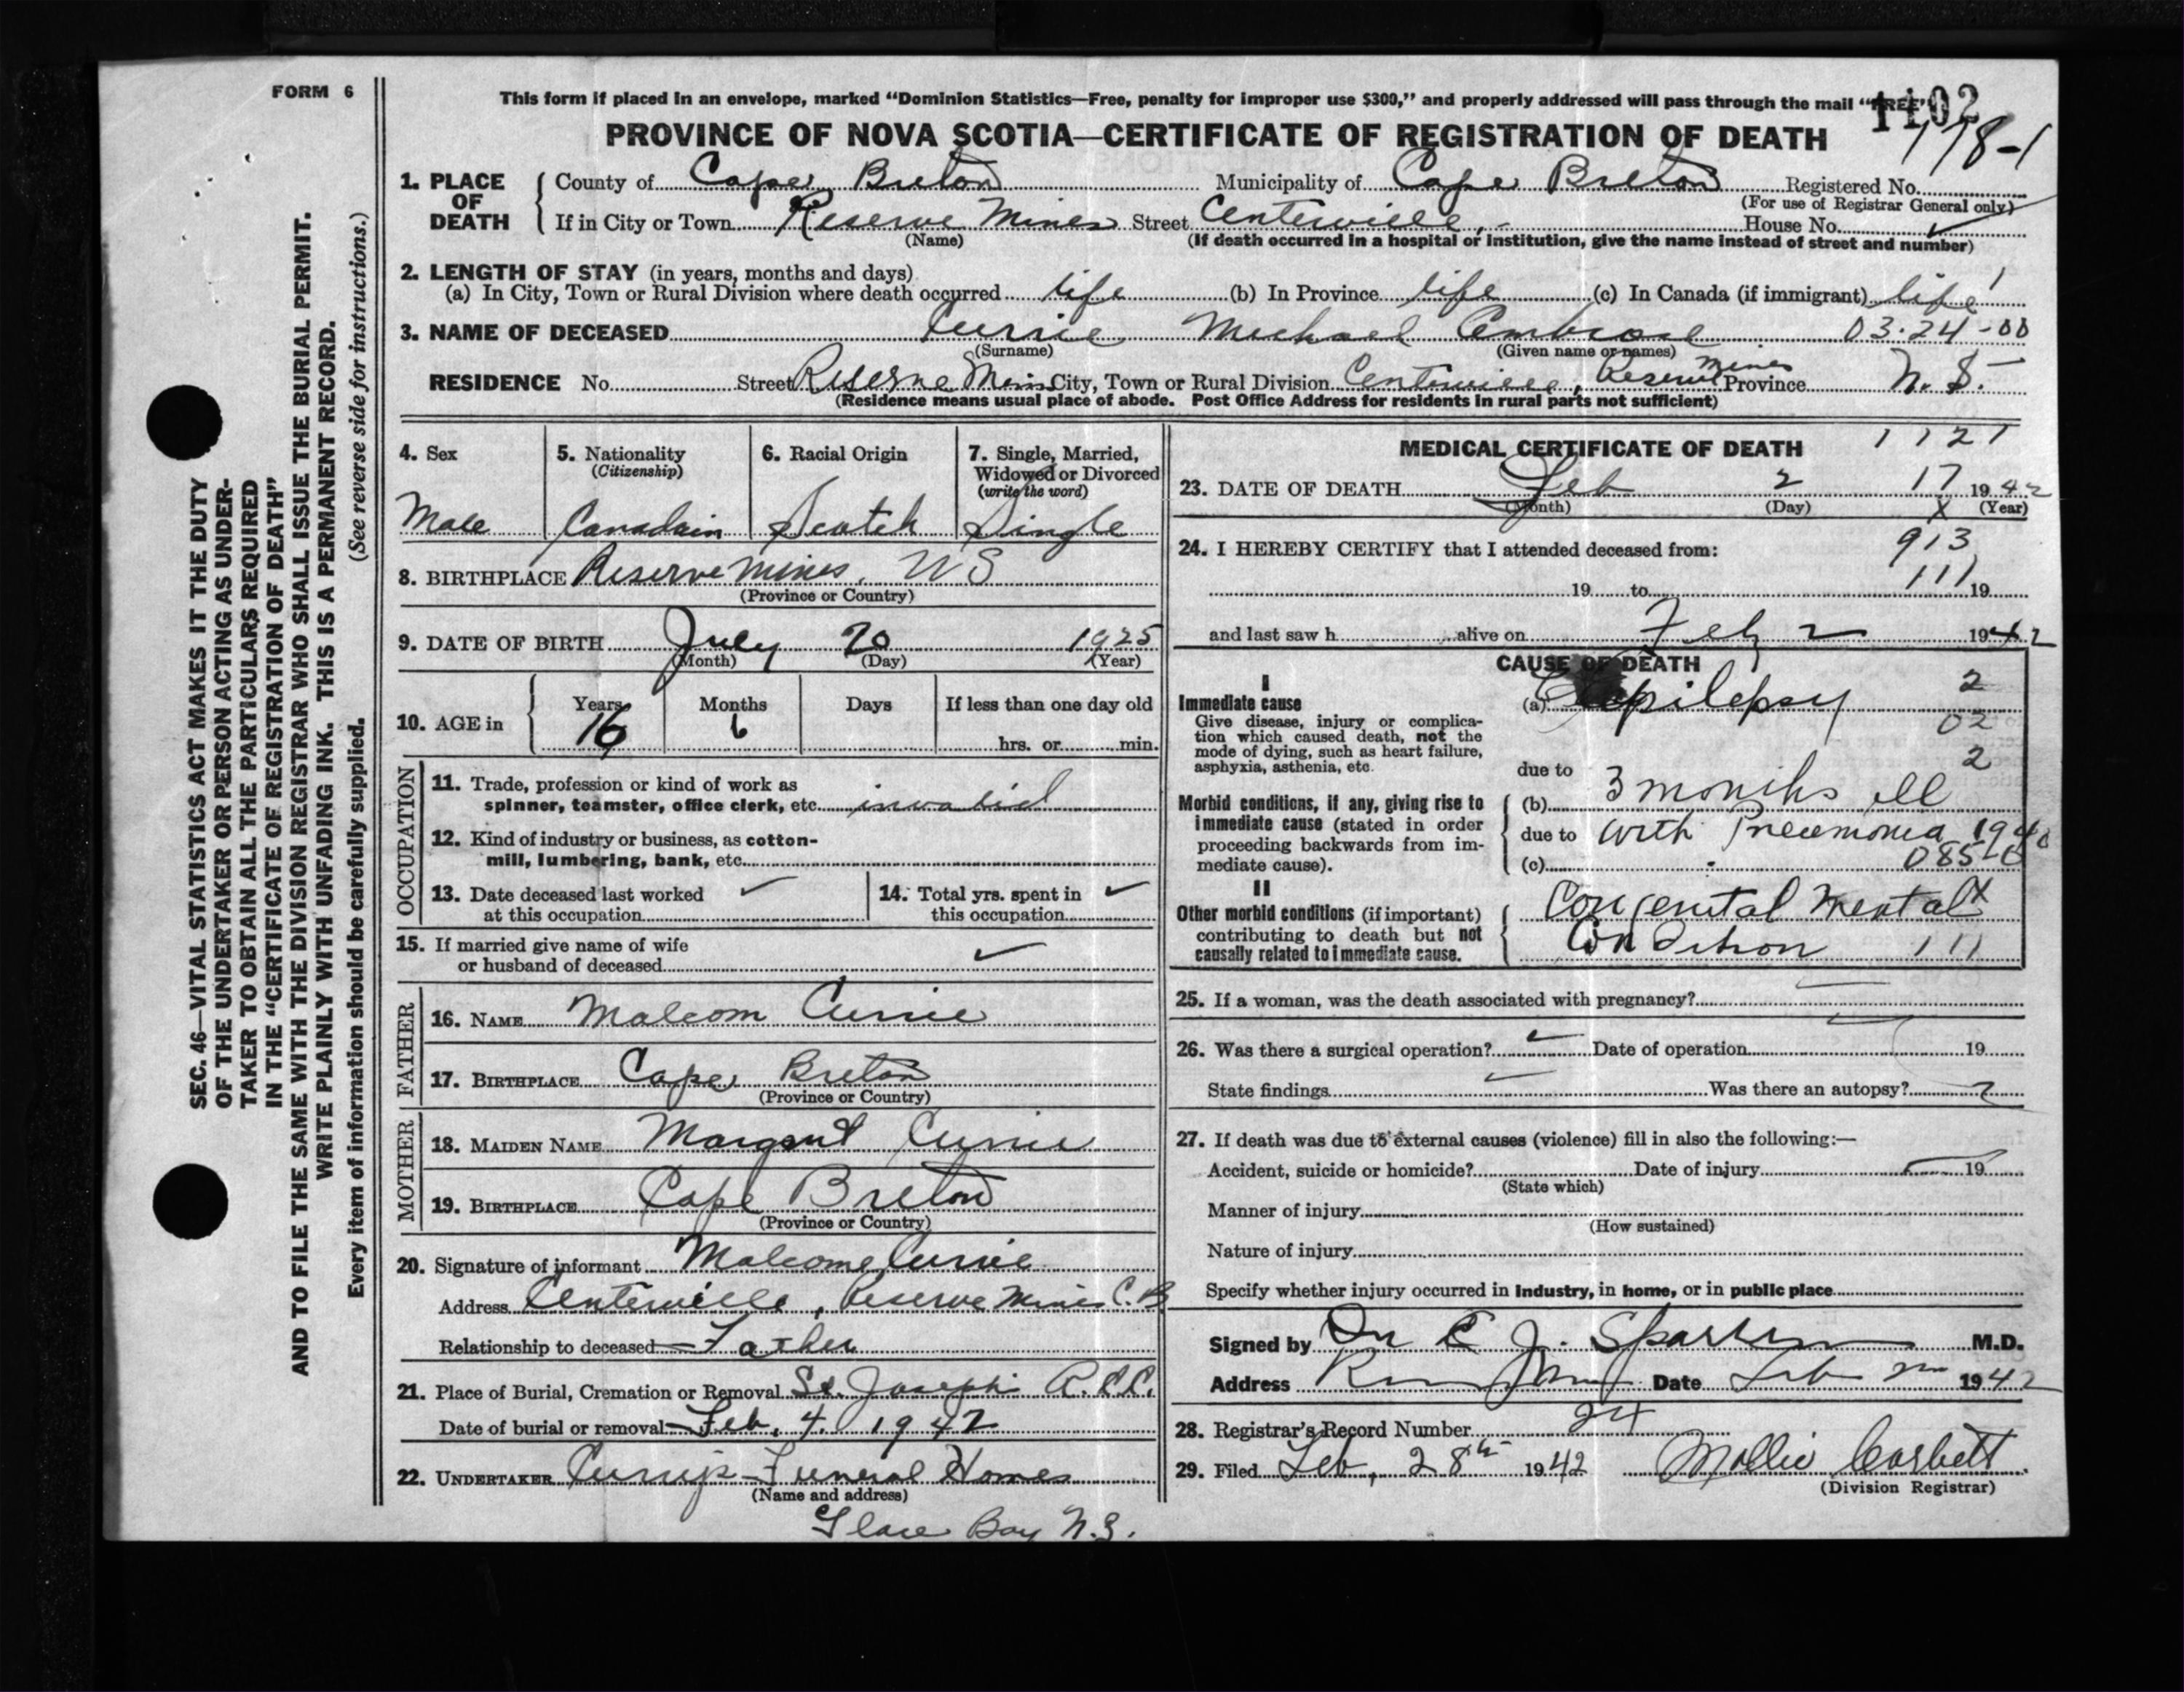 FORM 6
This form if placed in an envelope, marked “Dominion Statistics—Free, penalty for improper use $300,” and properly addressed will pass through the mail “FREE”
1402
178-1
PROVINCE OF NOVA SCOTIA—CERTIFICATE OF REGISTRATION OF DEATH
1. PLACE OF DEATH
County of Cape Breton Municipality of Cape Breton Registered No.
(For use of Registrar General only)
If in City or Town Reserve Mines Street Centerville, House No.
(Name) (If death occurred in a hospital or institution, give the name instead of street and number)
2. LENGTH OF STAY (in years, months and days)
(a) In City, Town or Rural Division where death occurred life (b) In Province life (c) In Canada (if immigrant) life
3. NAME OF DECEASED Currie Michael Ambrose 03-24-00
(Surname) (Given name or names)
RESIDENCE No. Street Reserve Mines City, Town or Rural Division Centerville, Reserve Mines Province N. S.
(Residence means usual place of abode. Post Office Address for residents in rural parts not sufficient)
4. Sex 5. Nationality (Citizenship) 6. Racial Origin 7. Single, Married, Widowed or Divorced (write the word)
Male Canadain Scotch Single
8. BIRTHPLACE Reserve Mines, NS
(Province or Country)
9. DATE OF BIRTH July 20 1925
(Month) (Day) (Year)
10. AGE in Years Months Days If less than one day old
16 6 hrs. or min.
OCCUPATION
11. Trade, profession or kind of work as
spinner, teamster, office clerk, etc. invalid
12. Kind of industry or business, as cotton-
mill, lumbering, bank, etc.
13. Date deceased last worked at this occupation 14. Total yrs. spent in this occupation
15. If married give name of wife
or husband of deceased
FATHER
16. NAME Malcom Currie
17. BIRTHPLACE Cape Breton
(Province or Country)
MOTHER
18. MAIDEN NAME Margaret Currie
19. BIRTHPLACE Cape Breton
(Province or Country)
20. Signature of informant Malcome Currie
Address Centerville, Reserve Mines C. B
Relationship to deceased Father
21. Place of Burial, Cremation or Removal St. Joseph R.C.C.
Date of burial or removal Feb. 4. 1942
22. UNDERTAKER Currie Funeral Homes
(Name and address)
Glace Bay N.S.
MEDICAL CERTIFICATE OF DEATH 1121
23. DATE OF DEATH Feb 2 17 1942
(Month) (Day) X (Year)
24. I HEREBY CERTIFY that I attended deceased from: 913
19 to 111 19
and last saw h alive on Feb 2 1942
CAUSE OF DEATH
I
Immediate cause
Give disease, injury or complica-
tion which caused death, not the
mode of dying, such as heart failure,
asphyxia, asthenia, etc.
(a) Epilepsy 2
02
due to 2
Morbid conditions, if any, giving rise to
immediate cause (stated in order
proceeding backwards from im-
mediate cause).
(b) 3 months ill
due to with Pneumonia 1940
(c) 085-0
II
Other morbid conditions (if important)
contributing to death but not
causally related to immediate cause.
Congenital Mental X
Condition 111
25. If a woman, was the death associated with pregnancy?
26. Was there a surgical operation? Date of operation 19
State findings Was there an autopsy?
27. If death was due to external causes (violence) fill in also the following:—
Accident, suicide or homicide? Date of injury 19
(State which)
Manner of injury
(How sustained)
Nature of injury
Specify whether injury occurred in industry, in home, or in public place
Signed by Dr M.D.
Address Date Feb 2 1942
28. Registrar's Record Number 24
29. Filed Feb, 28th 1942 Mollie Corbett
(Division Registrar)
SEC. 46—VITAL STATISTICS ACT MAKES IT THE DUTY
OF THE UNDERTAKER OR PERSON ACTING AS UNDER-
TAKER TO OBTAIN ALL THE PARTICULARS REQUIRED
IN THE “CERTIFICATE OF REGISTRATION OF DEATH”
AND TO FILE THE SAME WITH THE DIVISION REGISTRAR WHO SHALL ISSUE THE BURIAL PERMIT.
WRITE PLAINLY WITH UNFADING INK. THIS IS A PERMANENT RECORD.
Every item of information should be carefully supplied. (See reverse side for instructions.)